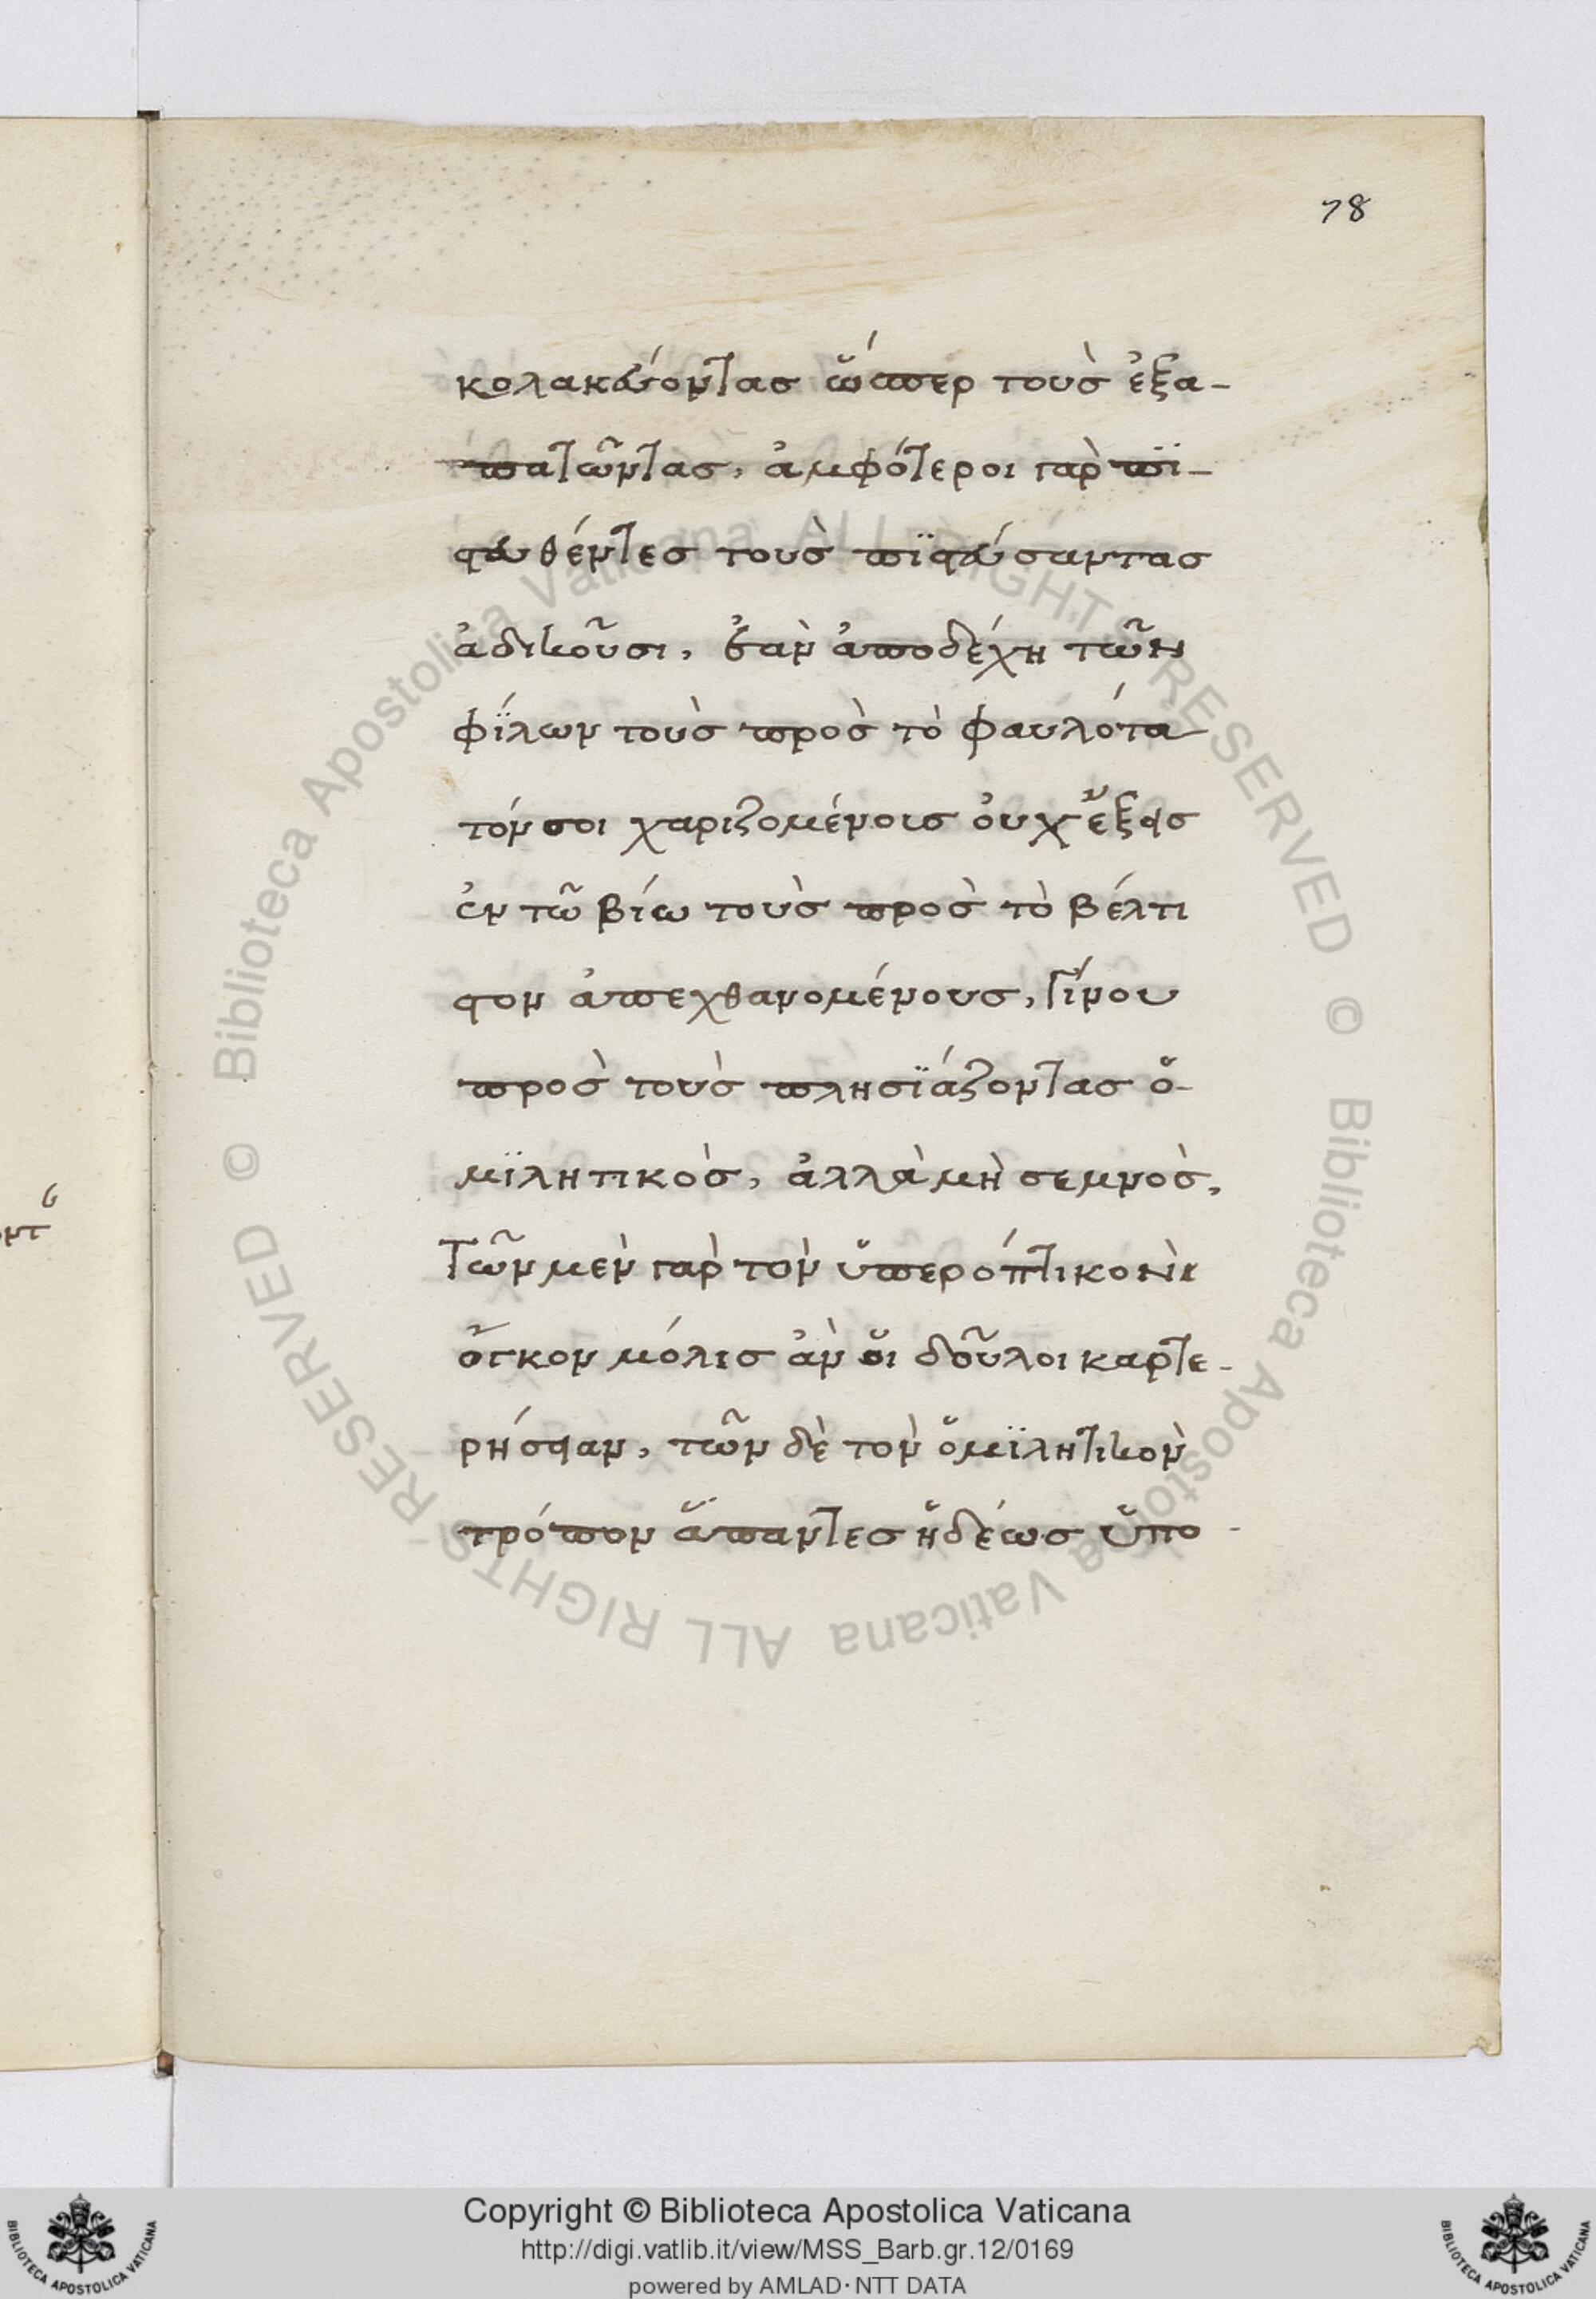 78
κολακεύοντας ὥσπερ τοὺς ἐξα-
πατῶντας, ἀμφότεροι γὰρ πϊ-
στευθέντες τοὺς πϊστεύσαντας
ἀδικοῦσι, ἐὰν ἀποδέχη τῶν
φΐλων τοὺς πρὸς τὸ φαυλότα
τόν σοι χαριζομένοις οὐχ ἕξεις
ἐν τῶ βίω τοὺς πρὸς τὸ βέλτι
στον ἀπεχθανομένους, Γίνου
πρὸς τοὺς πλησϊάζοντας ὁ-
μϊλητικὸς, ἀλλὰ μὴ σεμνὸς,
Τῶν μὲν γὰρ τὸν ὑπερόπτικον
ὄγκον μόλις ἂν οἱ δοῦλοι καρτε-
ρήσειαν, τῶν δὲ τὸν ὁμϊλητικὸν
τρόπον ἅπαντες ἡδέως ὑπο-
Copyright © Biblioteca Apostolica Vaticana
http://digi.vatlib.it/view/MSS_Barb.gr.12/0169
powered by AMLAD·NTT DATA
© Biblioteca Apostolica Vaticana ALL RIGHTS RESERVED © Biblioteca Apostolica Vaticana ALL RIGHTS RESERVED
BIBLIOTECA APOSTOLICA VATICANA
BIBLIOTECA APOSTOLICA VATICANA